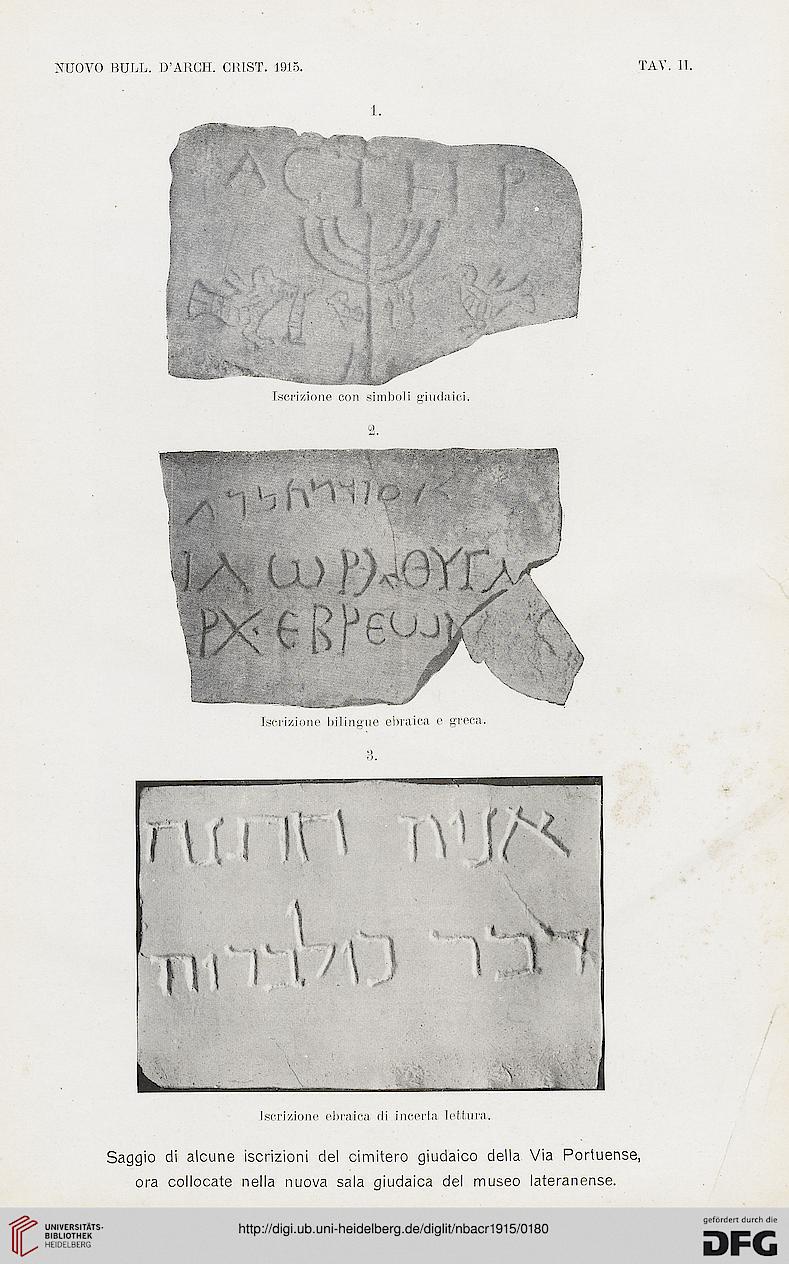 NUOVO BULL. D'ARCH. CRIST. 1915.
TAV. II.
1.
ΑCΤΗΡ
Iscrizione con simboli giudaici.
2.
ΡΧ·ЄΒΡЄω
Iscrizione bilingue ebraica e greca.
3.
דבר
Iscrizione ebraica di incerta lettura.
Saggio di alcune iscrizioni del cimitero giudaico della Via Portuense,
ora collocate nella nuova sala giudaica del museo lateranense.
UNIVERSITÄTS-
BIBLIOTHEK
HEIDELBERG
http://digi.ub.uni-heidelberg.de/diglit/nbacr1915/0180
gefördert durch die
DFG